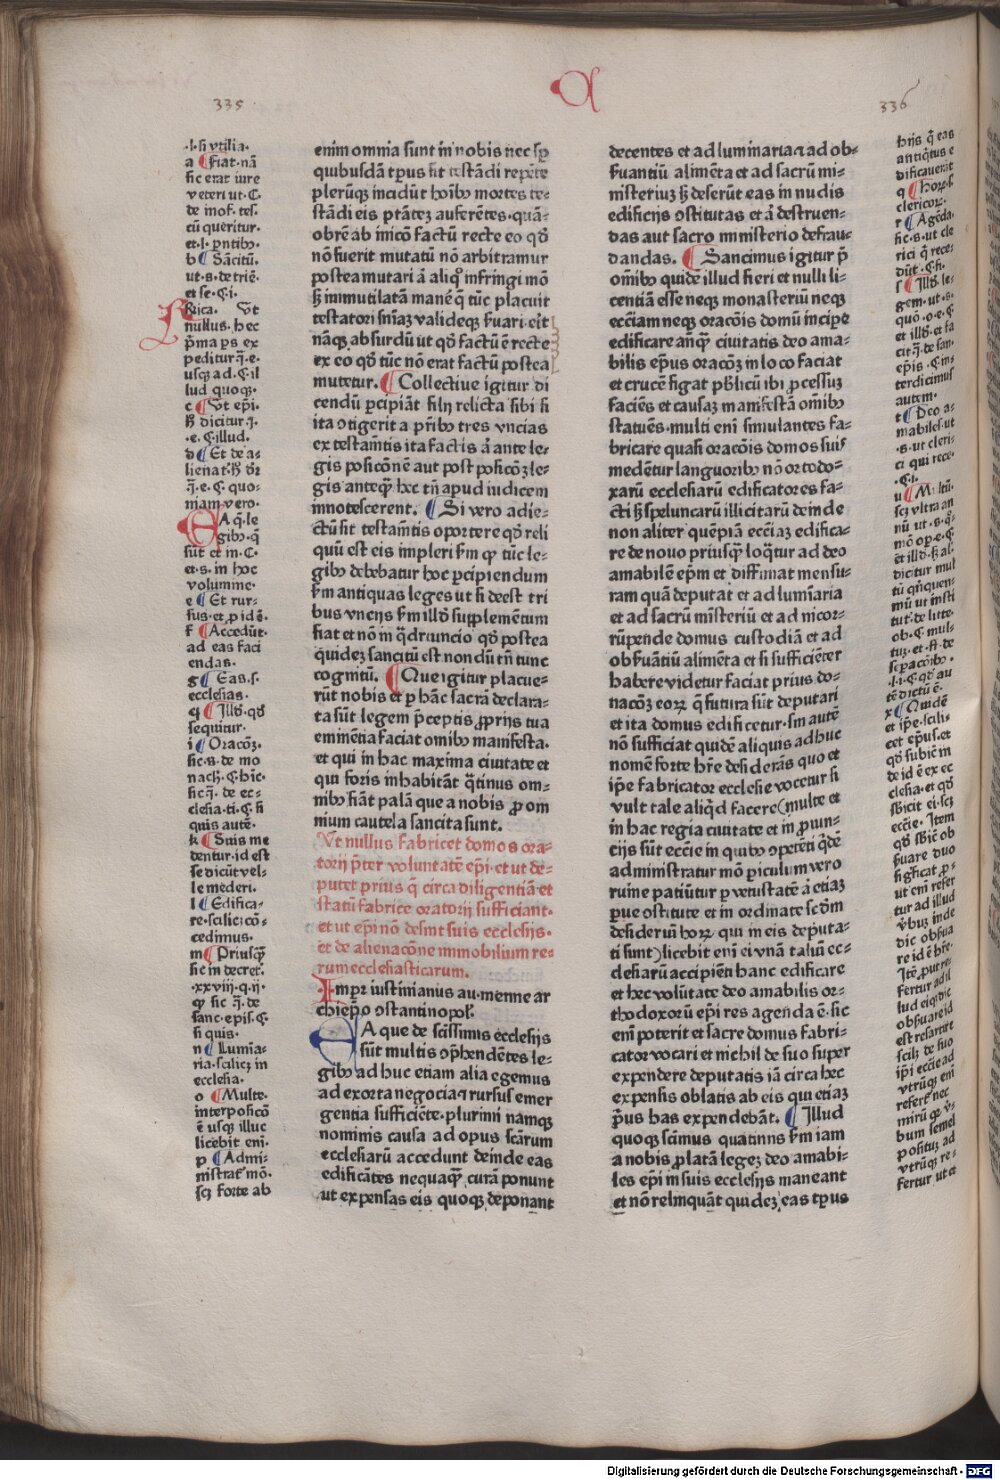 335
336
·l·si vtilia·
a ¶ Fiat·nā
sic erat iure
veteri ut·C·
de inof·tes·
cū queritur·
et·l·pntibꝫ·
b ¶ Sācitū·
ut·s·de triē·
et se·C·i·
Rica· Vt
nullus·hec
pma ps ex
peditur q̄·e·
usqꝫ ad·C·il
lud quoqꝫ·
c ¶ Vt epi·
ħ dicitur q̄·
·e·C·illud·
d ¶ Et de a-
lienat·ħ dr
q̄·e·C·quo-
niam vero·
A q̄·le
gibꝫ·q̄
sūt et in·C·
et·s·in hoc
volumine·
e ¶ Et rur-
sus·et ꝓ id ē·
f ¶ Accedūt·
ad eas faci
endas·
g ¶ Eas·s·
ecclesias·
h ¶ Illd·qd
sequitur·
i ¶ Oracōꝫ·
sic·s·de mo
nach·C·hic·
sic q̄·de ec-
clesia·ti·C·si
quis autē·
k ¶ Suis me
dentur·id est
se dicūt vel-
le mederi·
l ¶ Edifica-
re·scilicꝫ cō-
cedimus·
m ¶ Priusqꝫ
sic in decret·
·xxviij·q·ij·
qꝫ sic q̄·de
sanc·epis·C·
si quis·
n ¶ Lumīa-
ria·scilicꝫ in
ecclesia·
o ¶ Multe·
interposicō
ē usqꝫ illuc
licebit eni·
p ¶ Admi-
nistrat mō·
scꝫ forte ab
enim omnia sunt in nobis nec sꝑ
quibusdā tꝑus sit testādi repete
plerūqꝫ incidūt hoībꝫ mortes te-
stādi eis ptātēꝫ auferētes·quā-
obrē ab inicō factū recte eo qd
nō fuerit mutatū nō arbitramur
postea mutari ā aliqꝫ infringi mō
ħ immutilatā manē qꝫ tūc placuit
testatori sniaꝫ valideqꝫ ħuari·eīt
nāqꝫ absurdū ut qd factū ē recte
ex eo qd tūc nō erat factū postea
mutetur· ¶ Collectiue igitur di
cendū ꝑcipiāt filij relicta sibi si
ita ↄtigerit a pribꝫ tres vncias
ex testamtis ita factis ā ante le-
gis posicōnē aut post posicōꝫ le-
gis anteqꝫ hec tn̄ apud iudicem
innotescerent· ¶ Si vero adie-
ctū sit testamtis oportere qd reli
quū est eis impleri ħm qꝫ tūc le-
gibꝫ debebatur hoc ꝑcipiendum
ħm antiquas leges ut si deest tri
bus vncijs ħm illd supplemētum
fiat et nō in q̄druncio qd postea
quideꝫ sancitū est nondū tn̄ tunc
cognitū· ¶ Que igitur placue-
rūt nobis et ꝑ hāc sacrā declara-
ta sūt legem pceptis ꝓprijs tua
eminētia faciat omībꝫ manifesta·
et qui in hac maxima ciuitate et
qui foris inhabitāt q̄tinus om-
nibꝫ siāt palā que a nobis ꝓ om
nium cautela sancita sunt·
Vt nullus fabricet domos ora-
torij pter voluntatē epi·et ut de-
putet prius q̄ circa diligentiā·et
statū fabrice oratorij sufficiant·
et ut epi nō desint suis ecclesijs·
et de alienacōne immobilium re-
rum ecclesiasticarum·
Impꝛ iustinianus au·menne ar
chiepo ↄstantinopol·
EA que de scissimis ecclesijs
sūt multis ↄphendētes le-
gibꝫ ad huc etiam alia egemus
ad exorta negocia ⁊ rursus emer
gentia sufficiēte·plurimi namqꝫ
nominis causa ad opus scārum
ecclesiarū accedunt deinde eas
edificātes nequaqꝫ curā ponunt
ut expensas eis quoqꝫ deponant
decentes et ad luminaria ⁊ ad ob-
ħuantiū alimēta et ad sacrū mi-
nisteriuꝫ ħ deserūt eas in nudis
edificijs ↄstitutas et ā destruen-
das aut sacro ministerio defrau-
dandas· ¶ Sancimus igitur p̄
omībꝫ quidē illud fieri et nulli li-
centiā esse neqꝫ monasteriū neqꝫ
ecciam neqꝫ oracōis domū incipe
edificare anqꝫ ciuitatis deo ama-
bilis epus oracōꝫ in loco faciat
et crucē figat pħlicū ibi ꝓcessuꝫ
faciēs et causaꝫ manifestā omībꝫ
statuēs·multi eni simulantes fa-
bricare quasi oracōis domos suis
medētur languoribꝫ nō ortodo-
xarū ecclesiarū edificatores fa-
cti ħ speluncarū illicitarū deinde
non aliter quēpiā ecciaꝫ edifica-
re de nouo priusqꝫ loq̄tur ad deo
amabilē epm et diffiniat mensu-
ram quā deputat et ad lumīaria
et ad sacrū mīsteriū et ad incor-
rūpende domus custodiā et ad
obħuātiū alimēta et si sufficiēter
habere videtur faciat prius do-
nacōꝫ eoꝝ q̄ futura sūt deputari
et ita domus edificetur·sin autē
nō sufficiat quidē aliquis adhuc
nomē forte hre desiderās quo et
ipe fabricator ecclesie vocetur si
vult tale aliqd facere (multe et
in hac regia ciuitate et in ꝓuin-
cijs sūt eccie in quibꝫ ↄpetēti q̄dē
administratur mō ꝑiculum vero
ruine patiūtur ꝑ vetustatē ā etiaꝫ
ꝑue ↄstitute et in ordinate scdm
desideriū hoꝝ qui in eis deputa-
ti sunt) licebit eni ei vnā taliū ec-
clesiarū accipiēti hanc edificare
et hec volūtate deo amabilis or-
thodoxorū epi res agenda ē·sic
eni poterit et sacre domus fabri-
cator vocari et nichil de suo super
expendere deputatis iā circa hec
expensis oblatis ab eis qui etiaꝫ
pus has expendebāt· ¶ Illud
quoqꝫ scimus quatinus ħm iam
a nobis ꝓlatā legeꝫ deo amabi-
les epi in suis ecclesijs maneant
et nō relinquāt quideꝫ eas tꝑus
hijs q̄ eas
antiqtus e
dificauerit
q ¶ Hoꝝ·s·
clericoꝝ·
r ¶ Agēda·
sic·s·ut cle
rici q̄ rece-
dūt·C·si·
s ¶ Illd·le-
gem·ut·s·
quō·o·e·C·
et illd·et fa
cit q̄·de san·
epis·C·in-
terdicimus
autem·
t ¶ Deo a-
mabiles·ut
·s·ut cleri-
ci qui rece·
·C·i·
u ¶ Multū·
scꝫ vltra an
nū ut·s·q̄-
mō op·e·C·
et illd·ħ al·
dicitur mul
tū qnquen-
niū ut insti
tut·de litte·
ob·C·mul-
tuꝫ·et·ff·de
sepacōibꝫ·
·l·i·C·qd au
tē dictū ē·
x ¶ Quidē
et ipe·scili-
cet epus·et
qd subicim
de id ē ex ec
clesia·et qd
sbicit ei·scꝫ
eccie· Item
qd sbic ob
ħuare duo
significat ꝓ-
ut eni refer
tur ad illud
vbuꝫ inde
dic obħua
re id ē hre·
Itē ꝓut re-
fertur ad il
lud eiqꝫ dic
obħuare id
est resartire
scilꝫ de suo
ipi eccie ad
vtrūqꝫ eni
refert nec
mirū qꝫ v-
bum semel
positus ad
vtrūqꝫ re-
fertur ut et
Digitalisierung gefördert durch die Deutsche Forschungsgemeinschaft - DFG